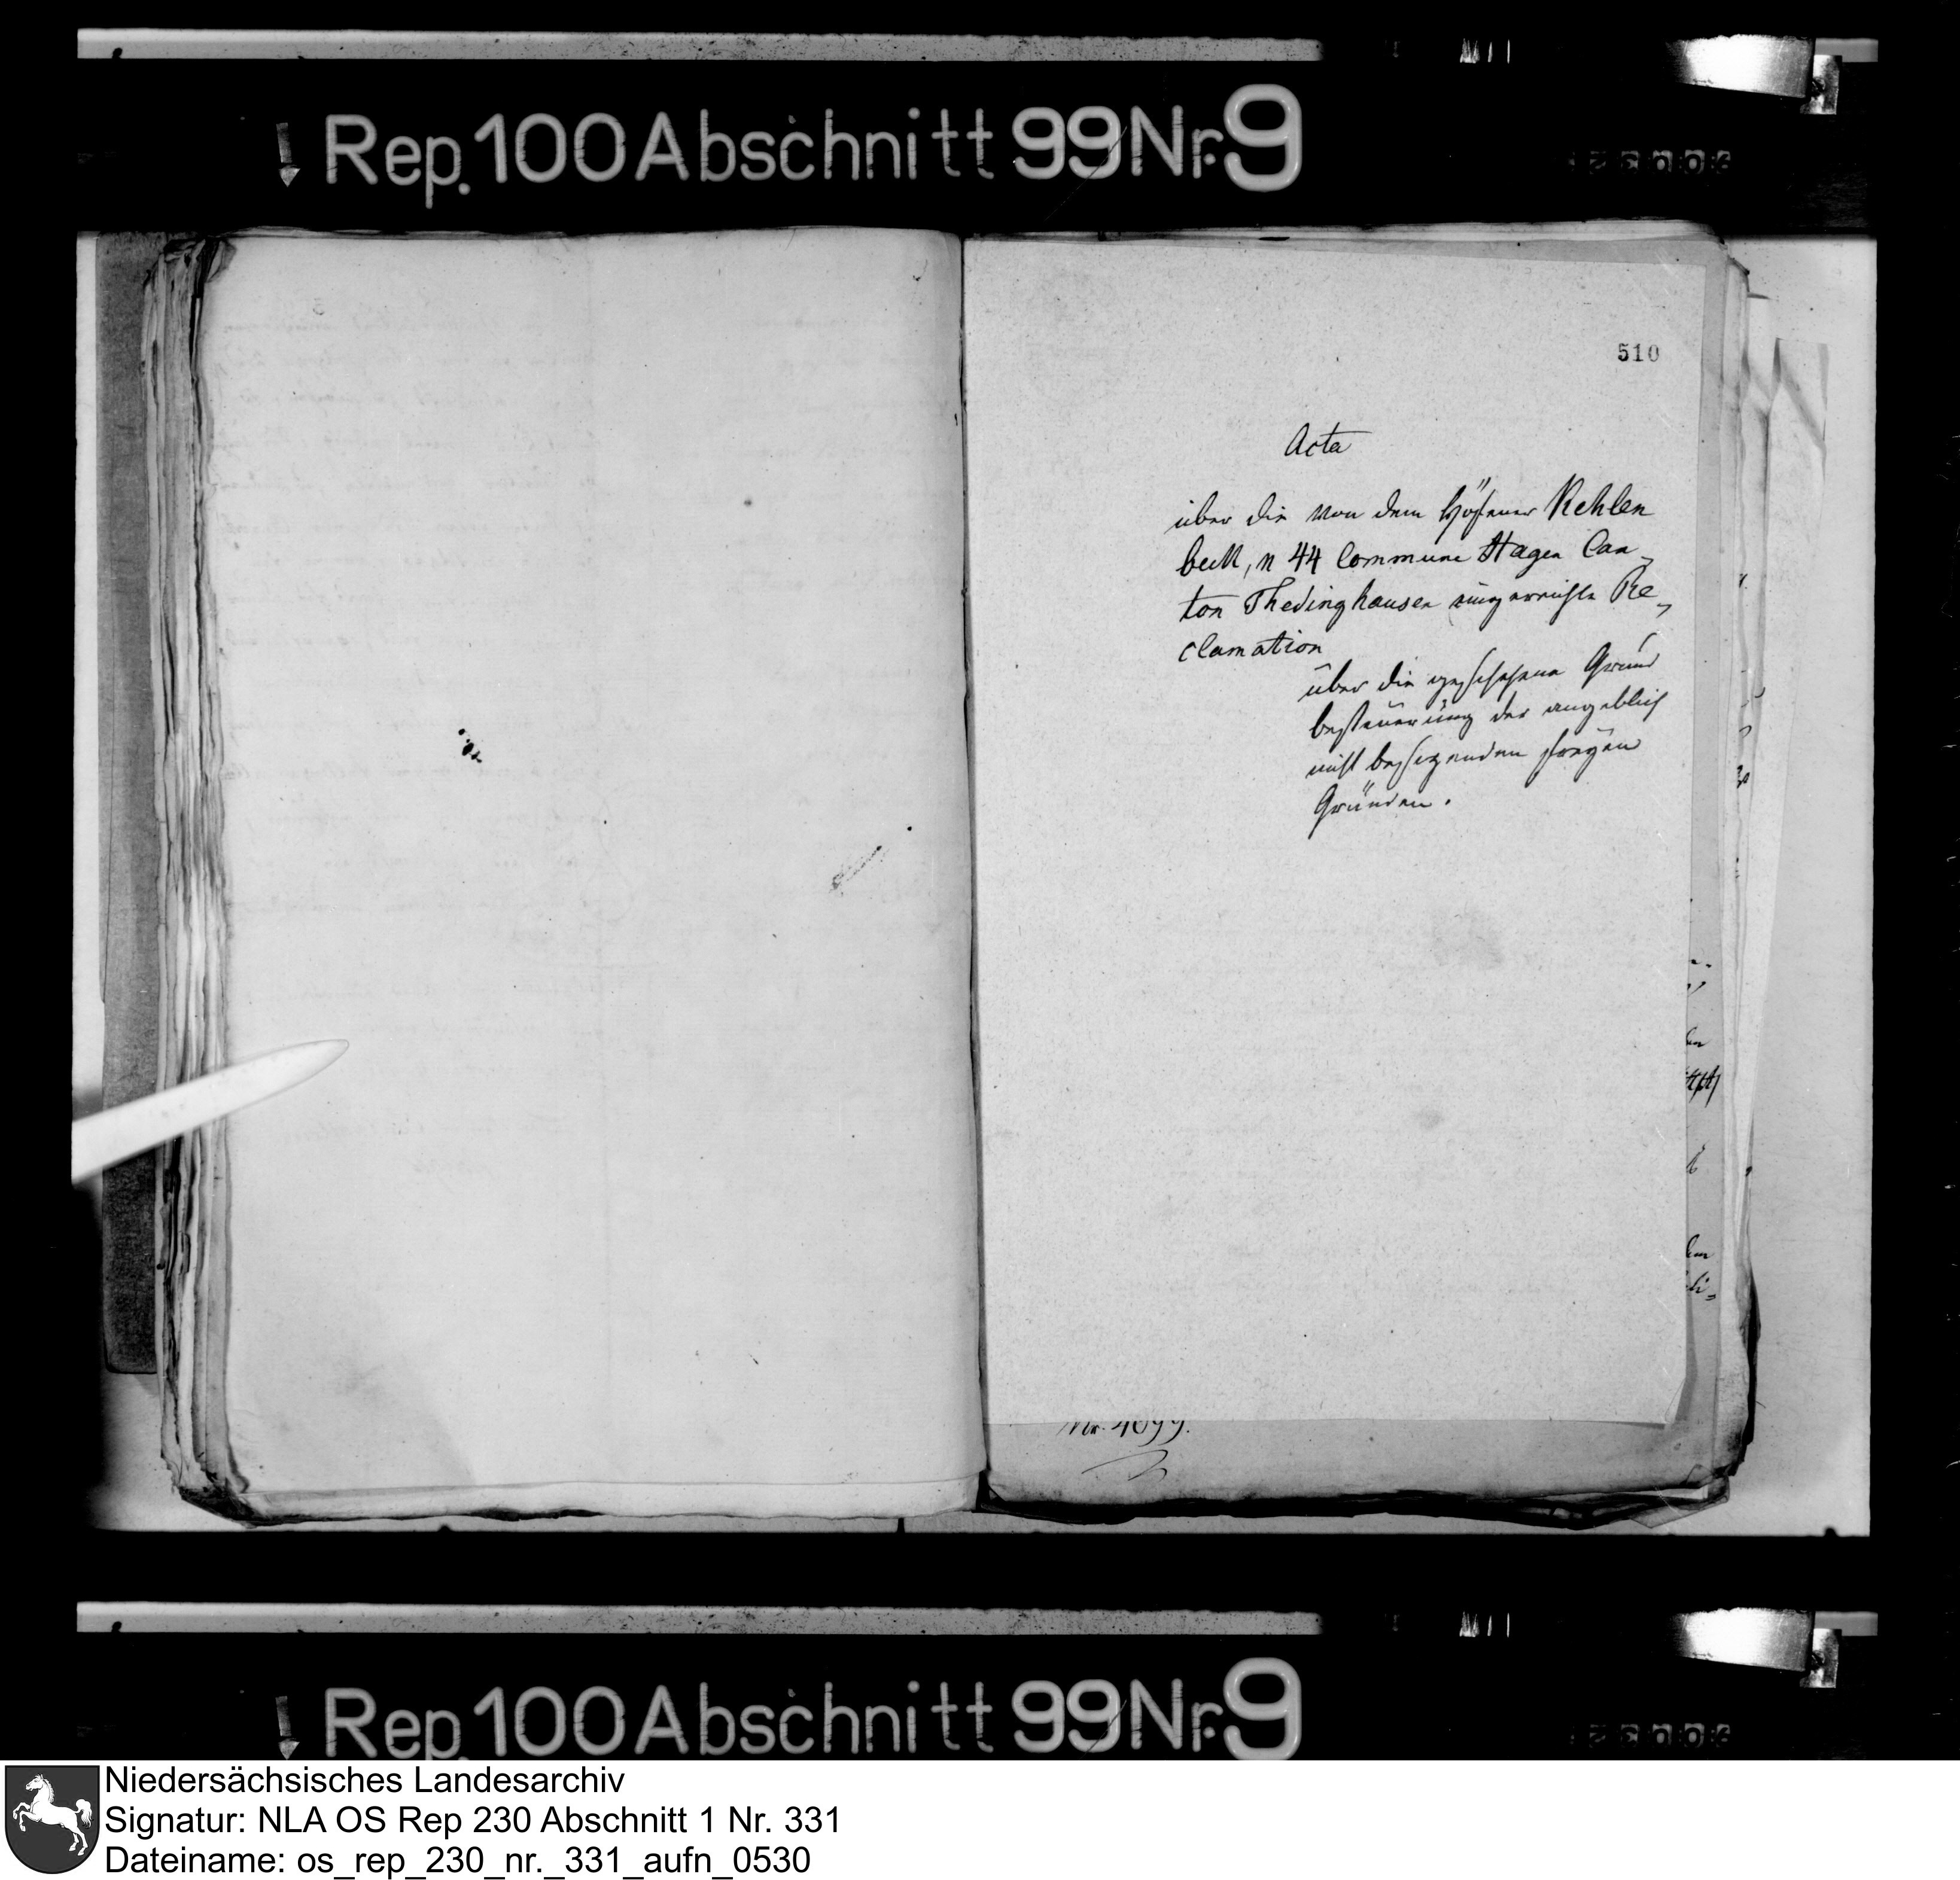 Rep. 100 Abschnitt 99 Nr. 9
510
Acta
über die von dem Höfener Kehlen
beck, n 44 Commune Hagen Can-
ton Thedinghausen eingereichte Re-
clamation
über die geschehene Grund
besteuerung der angeblich
nicht besizenden freyen
Gründen.
Nr. 4099.
Rep. 100 Abschnitt 99 Nr. 9
Niedersächsisches Landesarchiv
Signatur: NLA OS Rep 230 Abschnitt 1 Nr. 331
Dateiname: os_rep_230_nr._331_aufn_0530